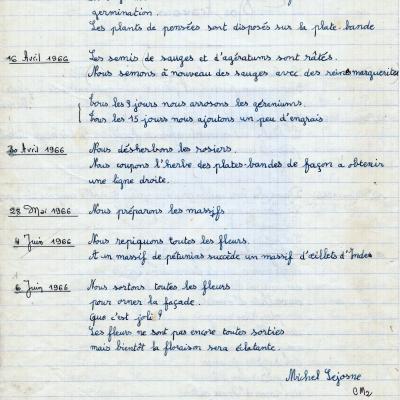 germination.
Les plants de pensées sont disposés sur la plate-bande
16 Avril 1966 Les semis de sauges et d'agératums sont râtés.
Nous semons à nouveau des sauges avec des reines marguerites
Tous les 3 jours nous arrosons les géraniums.
Tous les 15 jours nous ajoutons un peu d'engrais
30 Avril 1966 Nous désherbons les rosiers.
Nous coupons l'herbe des plates-bandes de façon a obtenir
une ligne droite.
28 Mai 1966 Nous préparons les massifs
4 Juin 1966 Nous repiquons toutes les fleurs.
A un massif de pétunias succède un massif d'œillets d'Indes
6 Juin 1966 Nous sortons toutes les fleurs
pour orner la façade.
Que c'est joli !
Les fleurs ne sont pas encore toutes sorties
mais bientôt la floraison sera éclatante.
Michel Lejosne
CM2